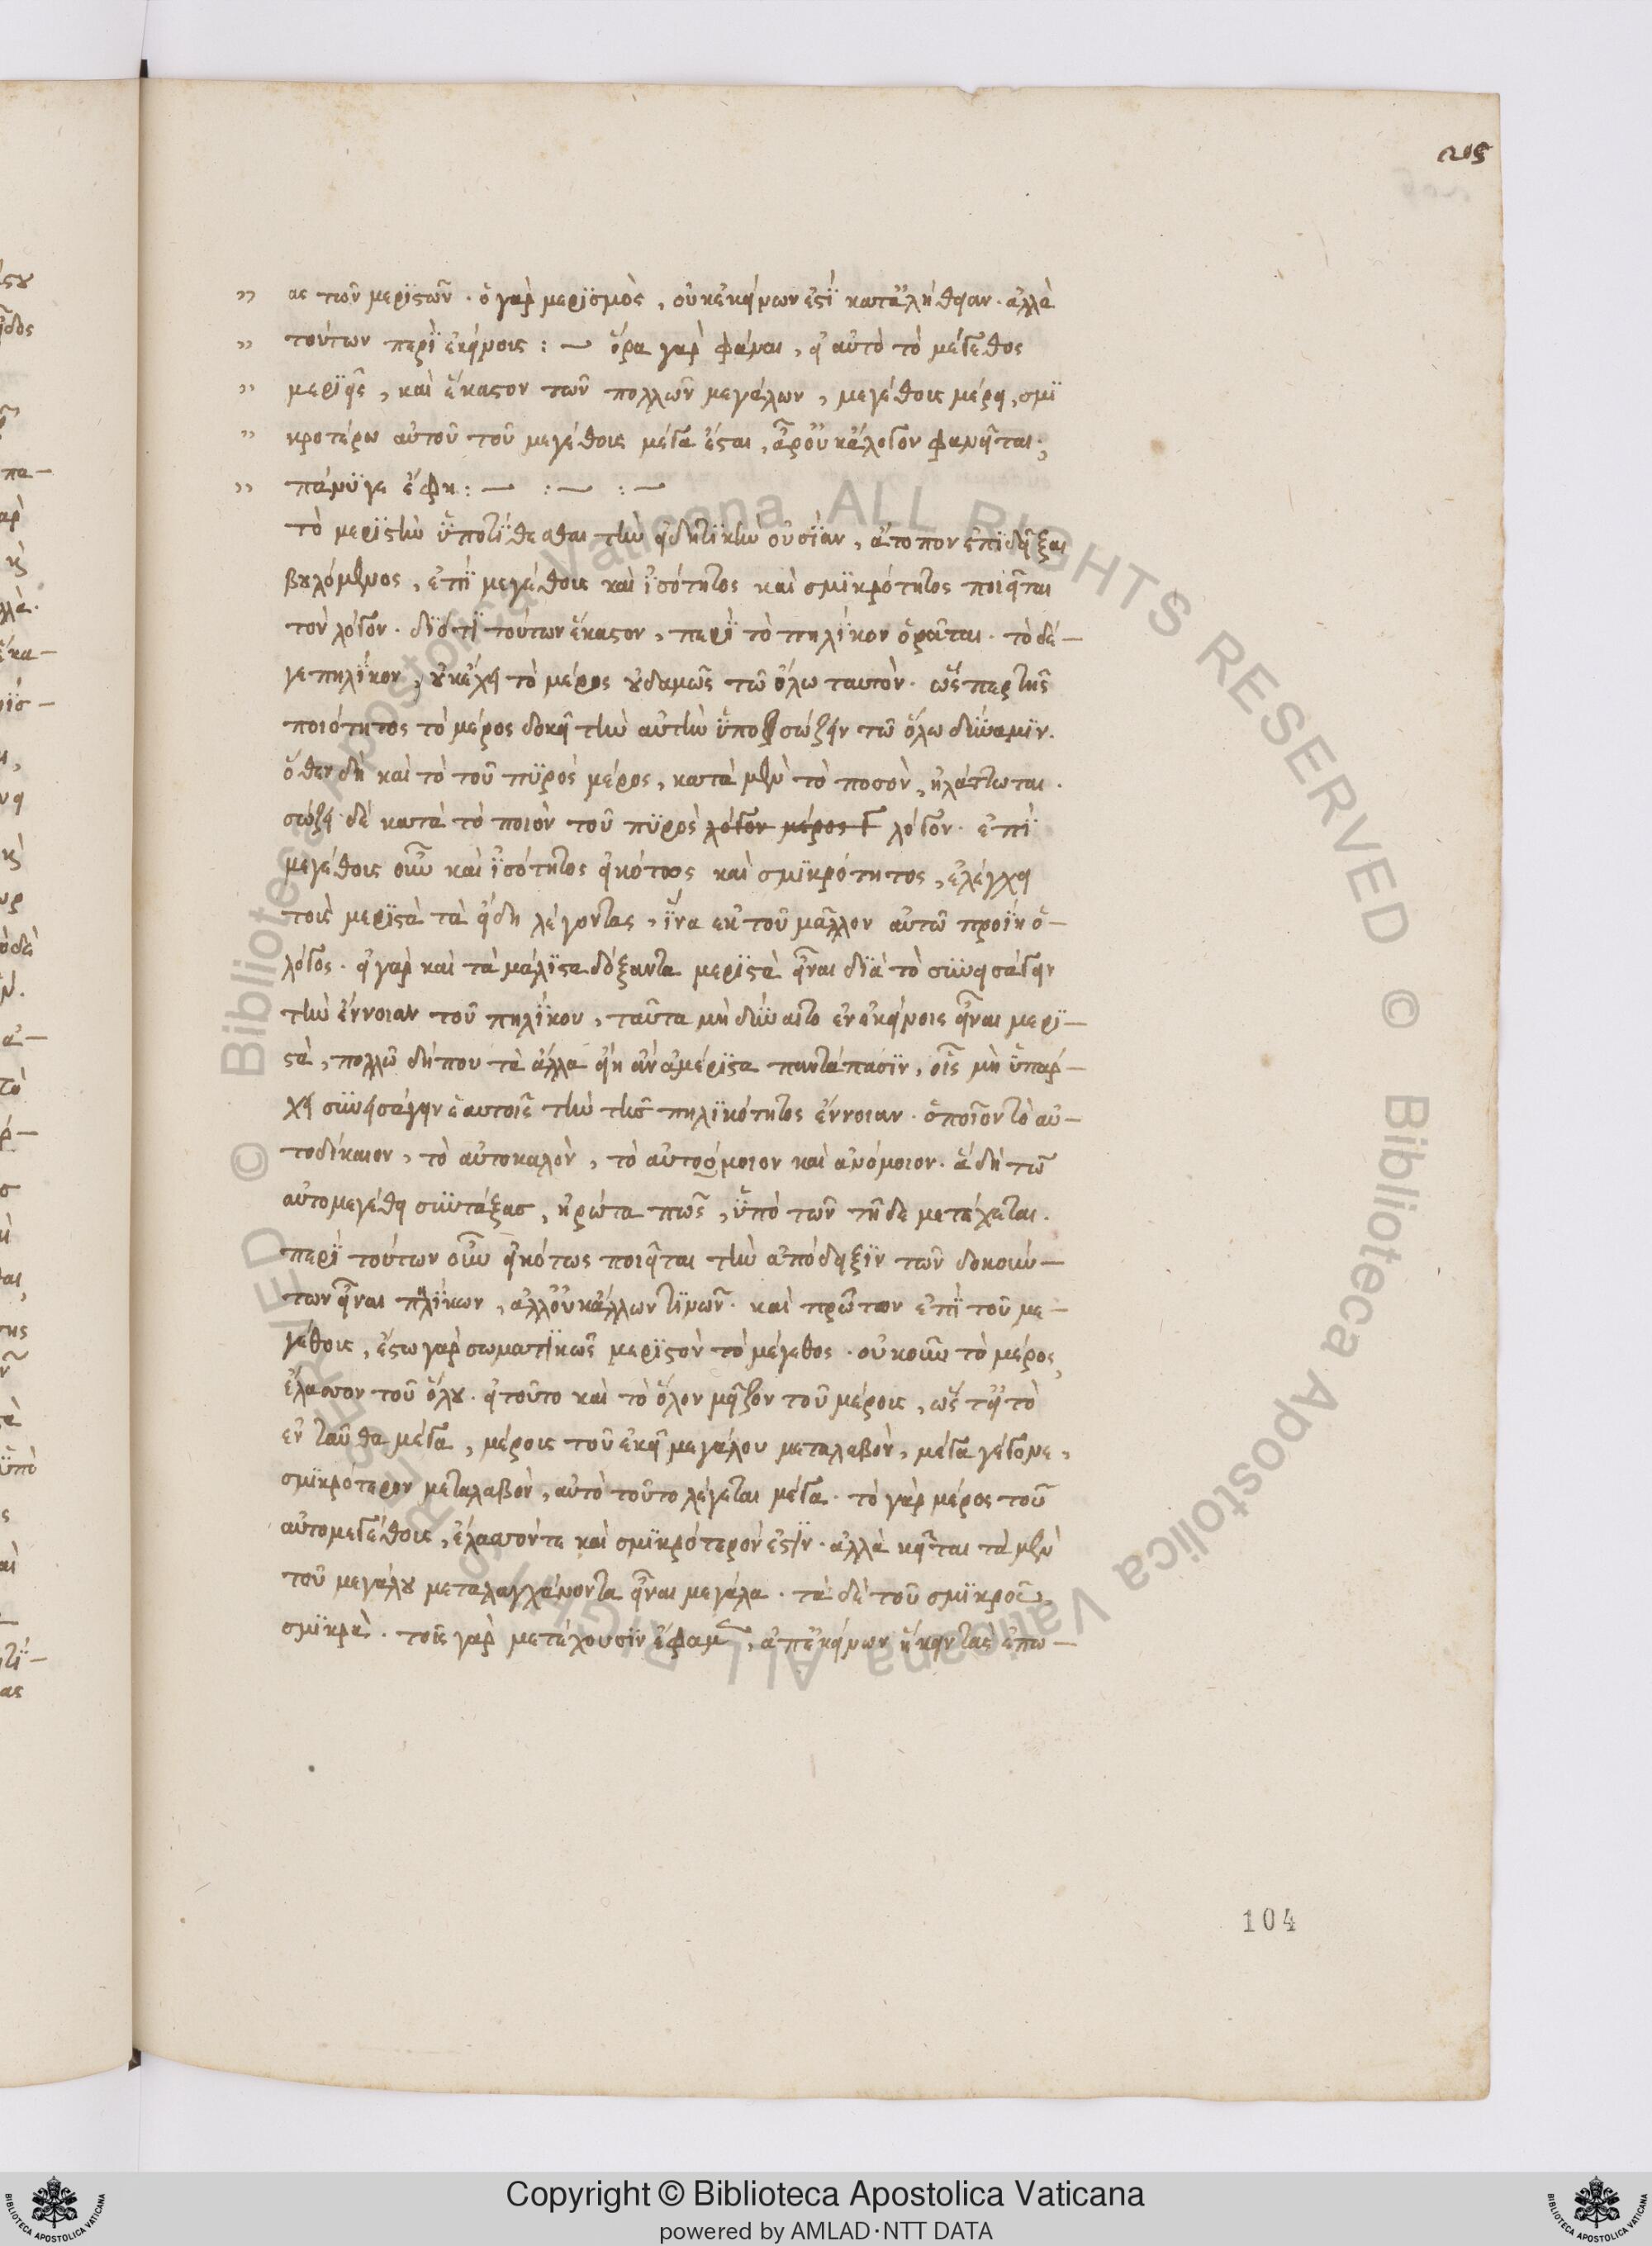 205
ας τῶν μεριστῶν. ὁ γὰρ μερισμὸς, οὐκ ἐκείνων ἐστὶ κατ' ἀλήθειαν. ἀλλὰ
τούτων περὶ ἐκείνοις :— ὅρα γὰρ φάναι, εἰ αὐτὸ τὸ μέγεθος
μεριεῖς, καὶ ἕκαστον τῶν πολλῶν μεγάλων, μεγέθους μέρει, σμι
κροτέρω αὐτοῦ τοῦ μεγέθους μέγα ἔσται, ἆρ' οὐκ ἄλογον φανεῖται;
πάνυ γε ἔφη :— :— :—
τὸ μεριστὴν ὑποτίθεσθαι τὴν εἰδητικὴν οὐσίαν, ἄτοπον ἐπιδεῖξαι
βουλόμενος, ἐπὶ μεγέθους καὶ ἰσότητος καὶ σμικρότητος ποιεῖται
τὸν λόγον. διότι τούτων ἕκαστον, περὶ τὸ πηλίκον ὁρᾶται. τὸ δέ—
γε πηλίκον, οὐκ ἔχει τὸ μέρος οὐδαμῶς τῶ ὅλω ταυτὸν. ὥσπερ τῆς
ποιότητος τὸ μέρος δοκεῖ τὴν αὐτὴν ὑποσώζειν τῶ ὅλω δύναμιν.
ὅθεν δὴ καὶ τὸ τοῦ πυρὸς μέρος, κατὰ μὲν τὸ ποσὸν, ἠλάττωται.
σώζει δὲ κατὰ τὸ ποιὸν τοῦ πυρὸς λόγον μέρος τ λόγον. ἐπὶ
μεγέθους οὖν καὶ ἰσότητος εἰκότως καὶ σμικρότητος, ἐλέγχει
τοὺς μεριστὰ τὰ εἴδη λέγοντας, ἵνα ἐκ τοῦ μᾶλλον αὐτῶ προΐη ὁ—
λόγος. εἰ γὰρ καὶ τὰ μάλιστα δόξαντα μεριστὰ εἶναι διὰ τὸ συνεισάγειν
τὴν ἔννοιαν τοῦ πηλίκου, ταῦτα μὴ δύναιτο ἐν ἐκείνοις εἶναι μερι—
στὰ, πολλῶ δήπου τὰ ἄλλα εἴη ἂν ἀμέριστα παντάπασιν, οἷς μὴ ὑπάρ—
χει συνεισάγειν ἑαυτοῖς τὴν τῆς πηλικότητος ἔννοιαν. ὁποῖον τὸ αὐ—
τοδίκαιον, τὸ αὐτοκαλὸν, τὸ αὐτοόμοιον καὶ ἀνόμοιον. ἃ δὴ τῶ
αὐτομεγέθει συντάξας, ἠρώτα πῶς, ὑπὸ τῶν τῆδε μετέχεται.
περὶ τούτων οὖν εἰκότως ποιεῖται τὴν ἀπόδειξιν τῶν δοκούν—
των εἶναι πηλίκων, ἀλλ' οὐκ ἄλλων τινῶν. καὶ πρῶτον ἐπὶ τοῦ με—
γέθους, ἔστω γὰρ σωματικῶς μεριστὸν τὸ μέγεθος. οὐκοῦν τὸ μέρος,
ἔλασσον τοῦ ὅλου. εἰ τοῦτο καὶ τὸ ὅλον μεῖζον τοῦ μέρους, ὥστ' εἰ τὸ
ἐνταῦθα μέγα, μέρους τοῦ ἐκεῖ μεγάλου μεταλαβὸν, μέγα γέγονε,
σμικροτέρου μεταλαβὸν, αὐτὸ τοῦτο λέγεται μέγα. τὸ γὰρ μέρος τοῦ
αὐτομεγέθους, ἔλασσόν τε καὶ σμικρότερόν ἐστιν. ἀλλὰ κεῖται τὰ μὲν
τοῦ μεγάλου μεταλαγχάνοντα εἶναι μεγάλα. τὰ δὲ τοῦ σμικροῦ,
σμικρὰ. τοῖς γὰρ μετέχουσιν ἔφαμεν, ἀπ' ἐκείνων ἥκειν τὰς ἐπω—
104
Copyright © Biblioteca Apostolica Vaticana
powered by AMLAD·NTT DATA